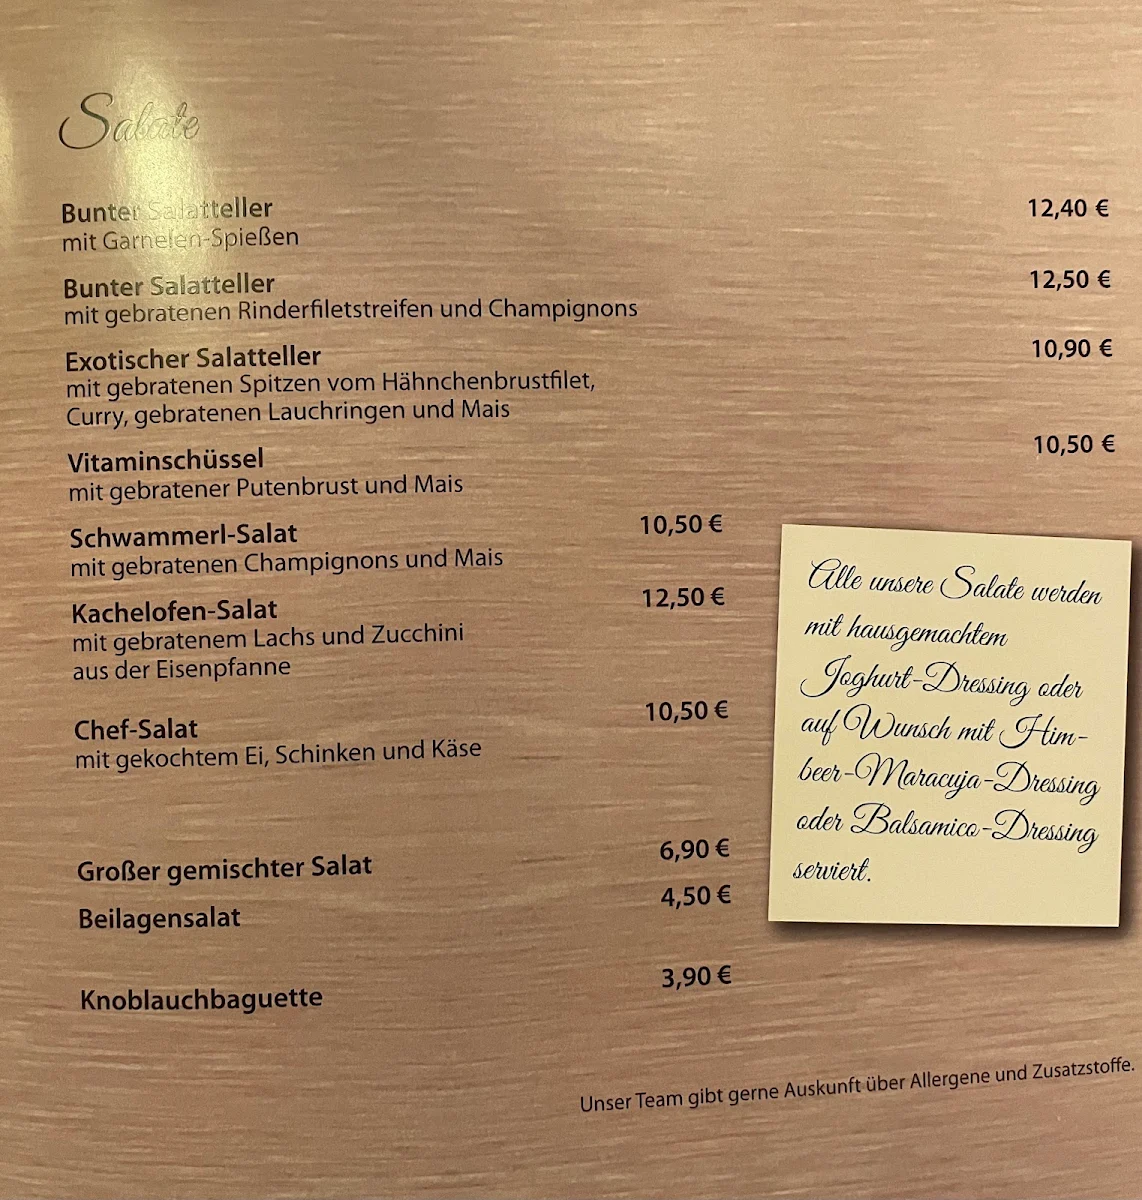 Salate
Bunter Salatteller 12,40 €
mit Garnelen-Spießen
Bunter Salatteller 12,50 €
mit gebratenen Rinderfiletstreifen und Champignons
Exotischer Salatteller 10,90 €
mit gebratenen Spitzen vom Hähnchenbrustfilet,
Curry, gebratenen Lauchringen und Mais
Vitaminschüssel 10,50 €
mit gebratener Putenbrust und Mais
Schwammerl-Salat 10,50 €
mit gebratenen Champignons und Mais
Kachelofen-Salat 12,50 €
mit gebratenem Lachs und Zucchini
aus der Eisenpfanne
Chef-Salat 10,50 €
mit gekochtem Ei, Schinken und Käse
Großer gemischter Salat 6,90 €
Beilagensalat 4,50 €
Knoblauchbaguette 3,90 €
Alle unsere Salate werden
mit hausgemachtem
Joghurt-Dressing oder
auf Wunsch mit Him-
beer-Maracuja-Dressing
oder Balsamico-Dressing
serviert.
Unser Team gibt gerne Auskunft über Allergene und Zusatzstoffe.